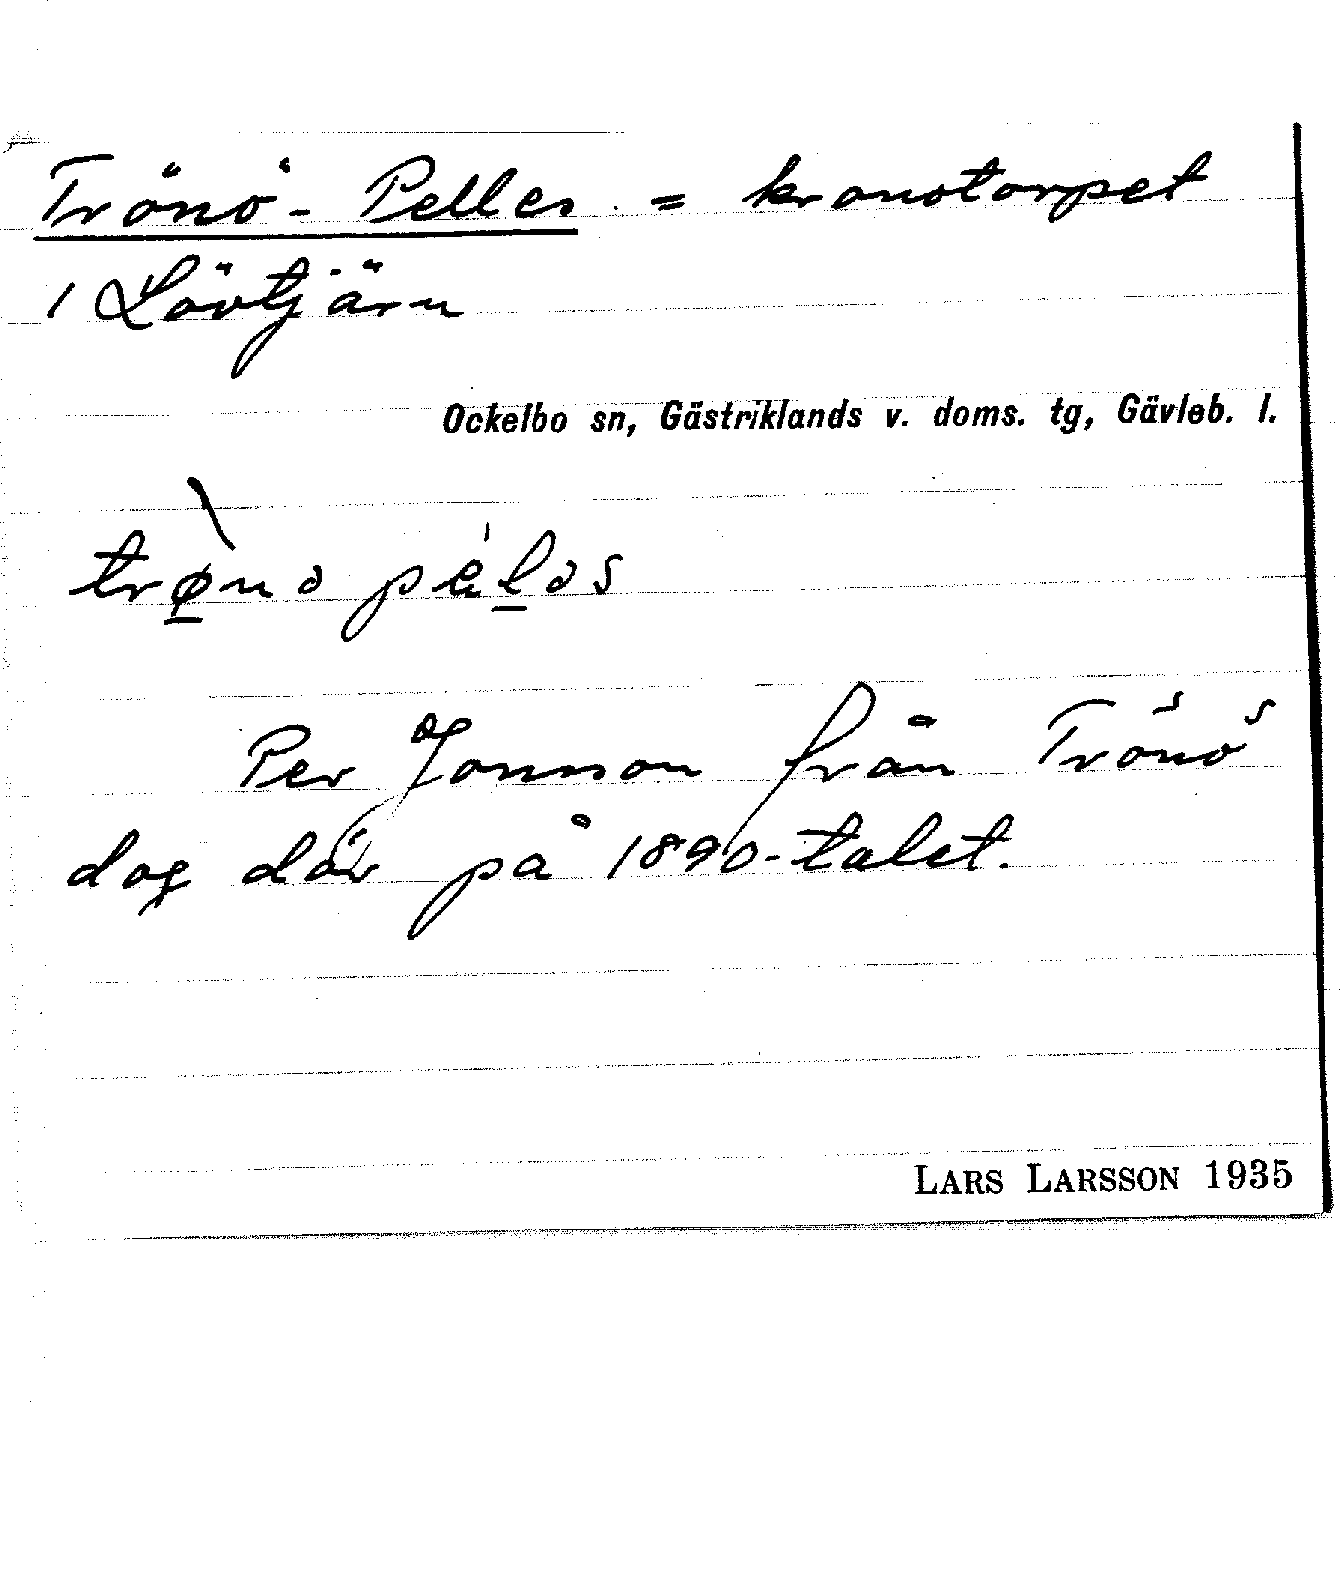 Trönö-Pelles = kronotorpet
i Lövtjärn
Ockelbo sn, Gästriklands v. doms. tg, Gävleb. l.
trø̀nə péləs
Per Jonsson från Trönö
dog där på 1890-talet.
LARS LARSSON 1935